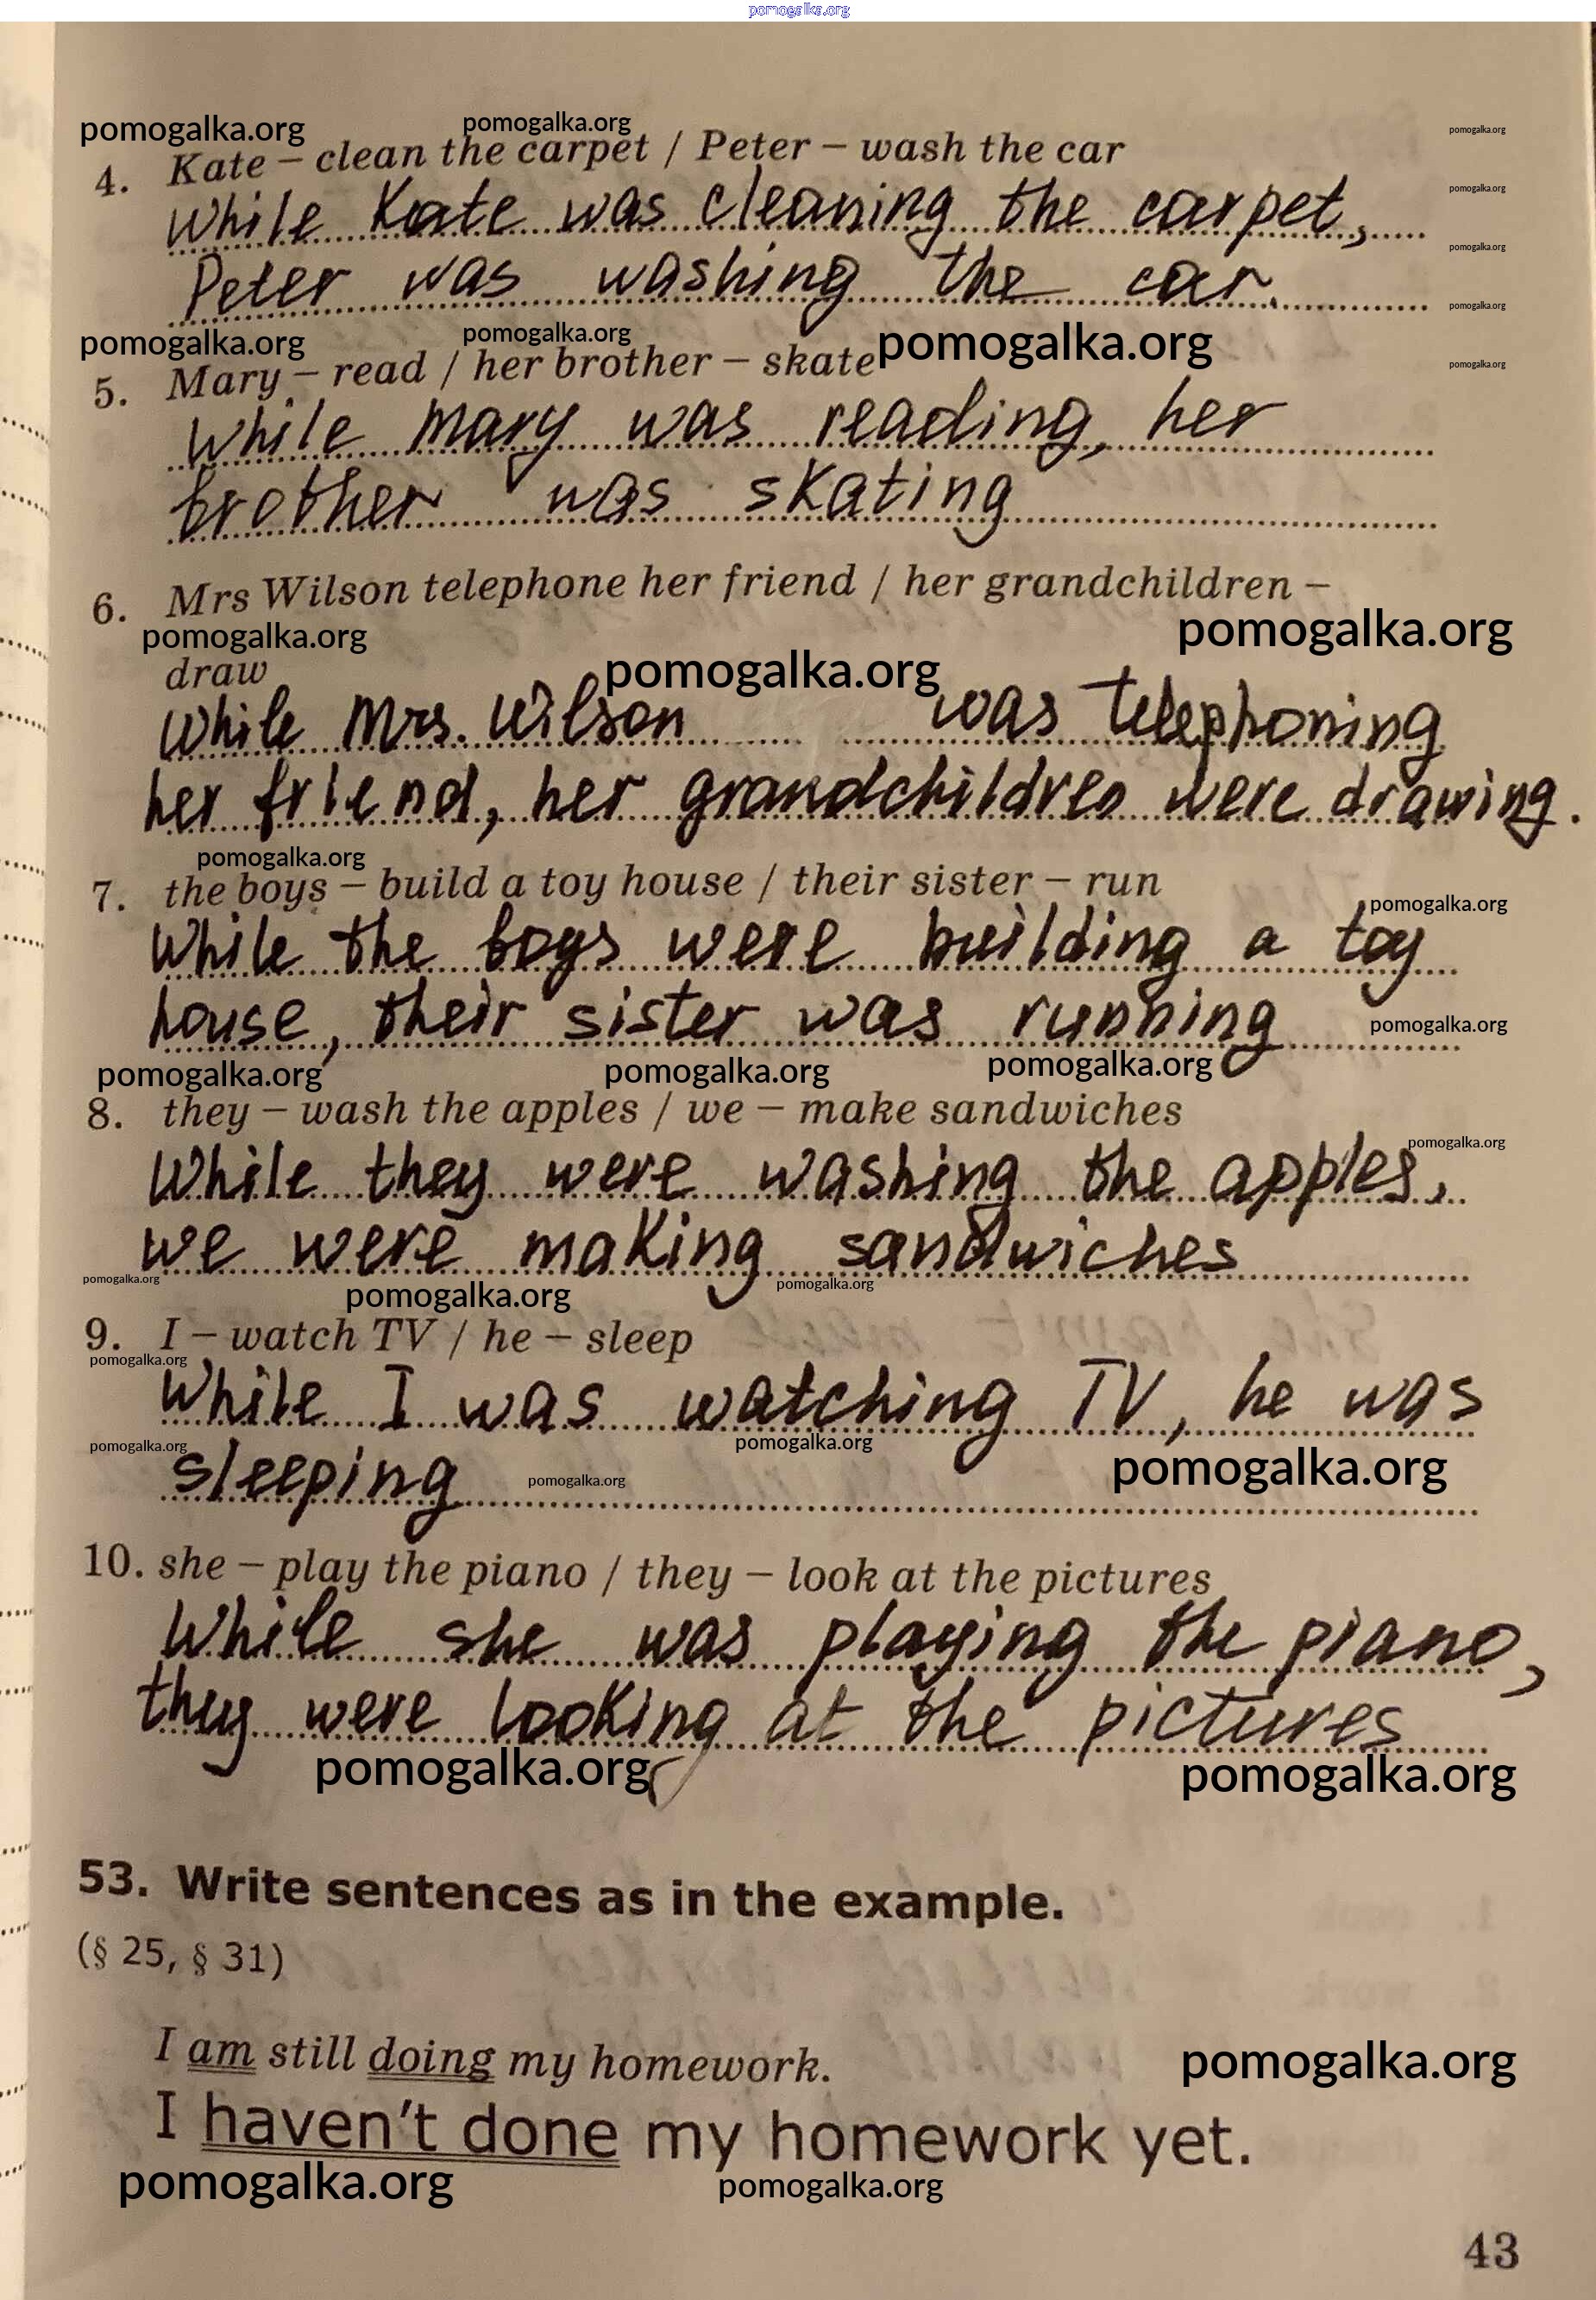 pomogalka.org
pomogalka.org pomogalka.org pomogalka.org
4. Kate – clean the carpet / Peter – wash the car
pomogalka.org
While Kate was cleaning the carpet,
pomogalka.org
Peter was washing the car.
pomogalka.org
pomogalka.org pomogalka.org pomogalka.org
pomogalka.org
5. Mary – read / her brother – skate
While Mary was reading, her
brother was skating
6. Mrs Wilson telephone her friend / her grandchildren –
pomogalka.org pomogalka.org
draw pomogalka.org
While Mrs. Wilson was telephoning
her friend, her grandchildren were drawing.
pomogalka.org
7. the boys – build a toy house / their sister – run
pomogalka.org
While the boys were building a toy
house, their sister was running
pomogalka.org
pomogalka.org pomogalka.org pomogalka.org
8. they – wash the apples / we – make sandwiches
pomogalka.org
While they were washing the apples,
we were making sandwiches
pomogalka.org pomogalka.org pomogalka.org
9. I – watch TV / he – sleep
pomogalka.org
While I was watching TV, he was
pomogalka.org pomogalka.org
sleeping pomogalka.org pomogalka.org
10. she – play the piano / they – look at the pictures
While she was playing the piano,
they were looking at the pictures
pomogalka.org pomogalka.org
53. Write sentences as in the example.
(§ 25, § 31)
I am still doing my homework.
pomogalka.org
I haven't done my homework yet.
pomogalka.org pomogalka.org
43